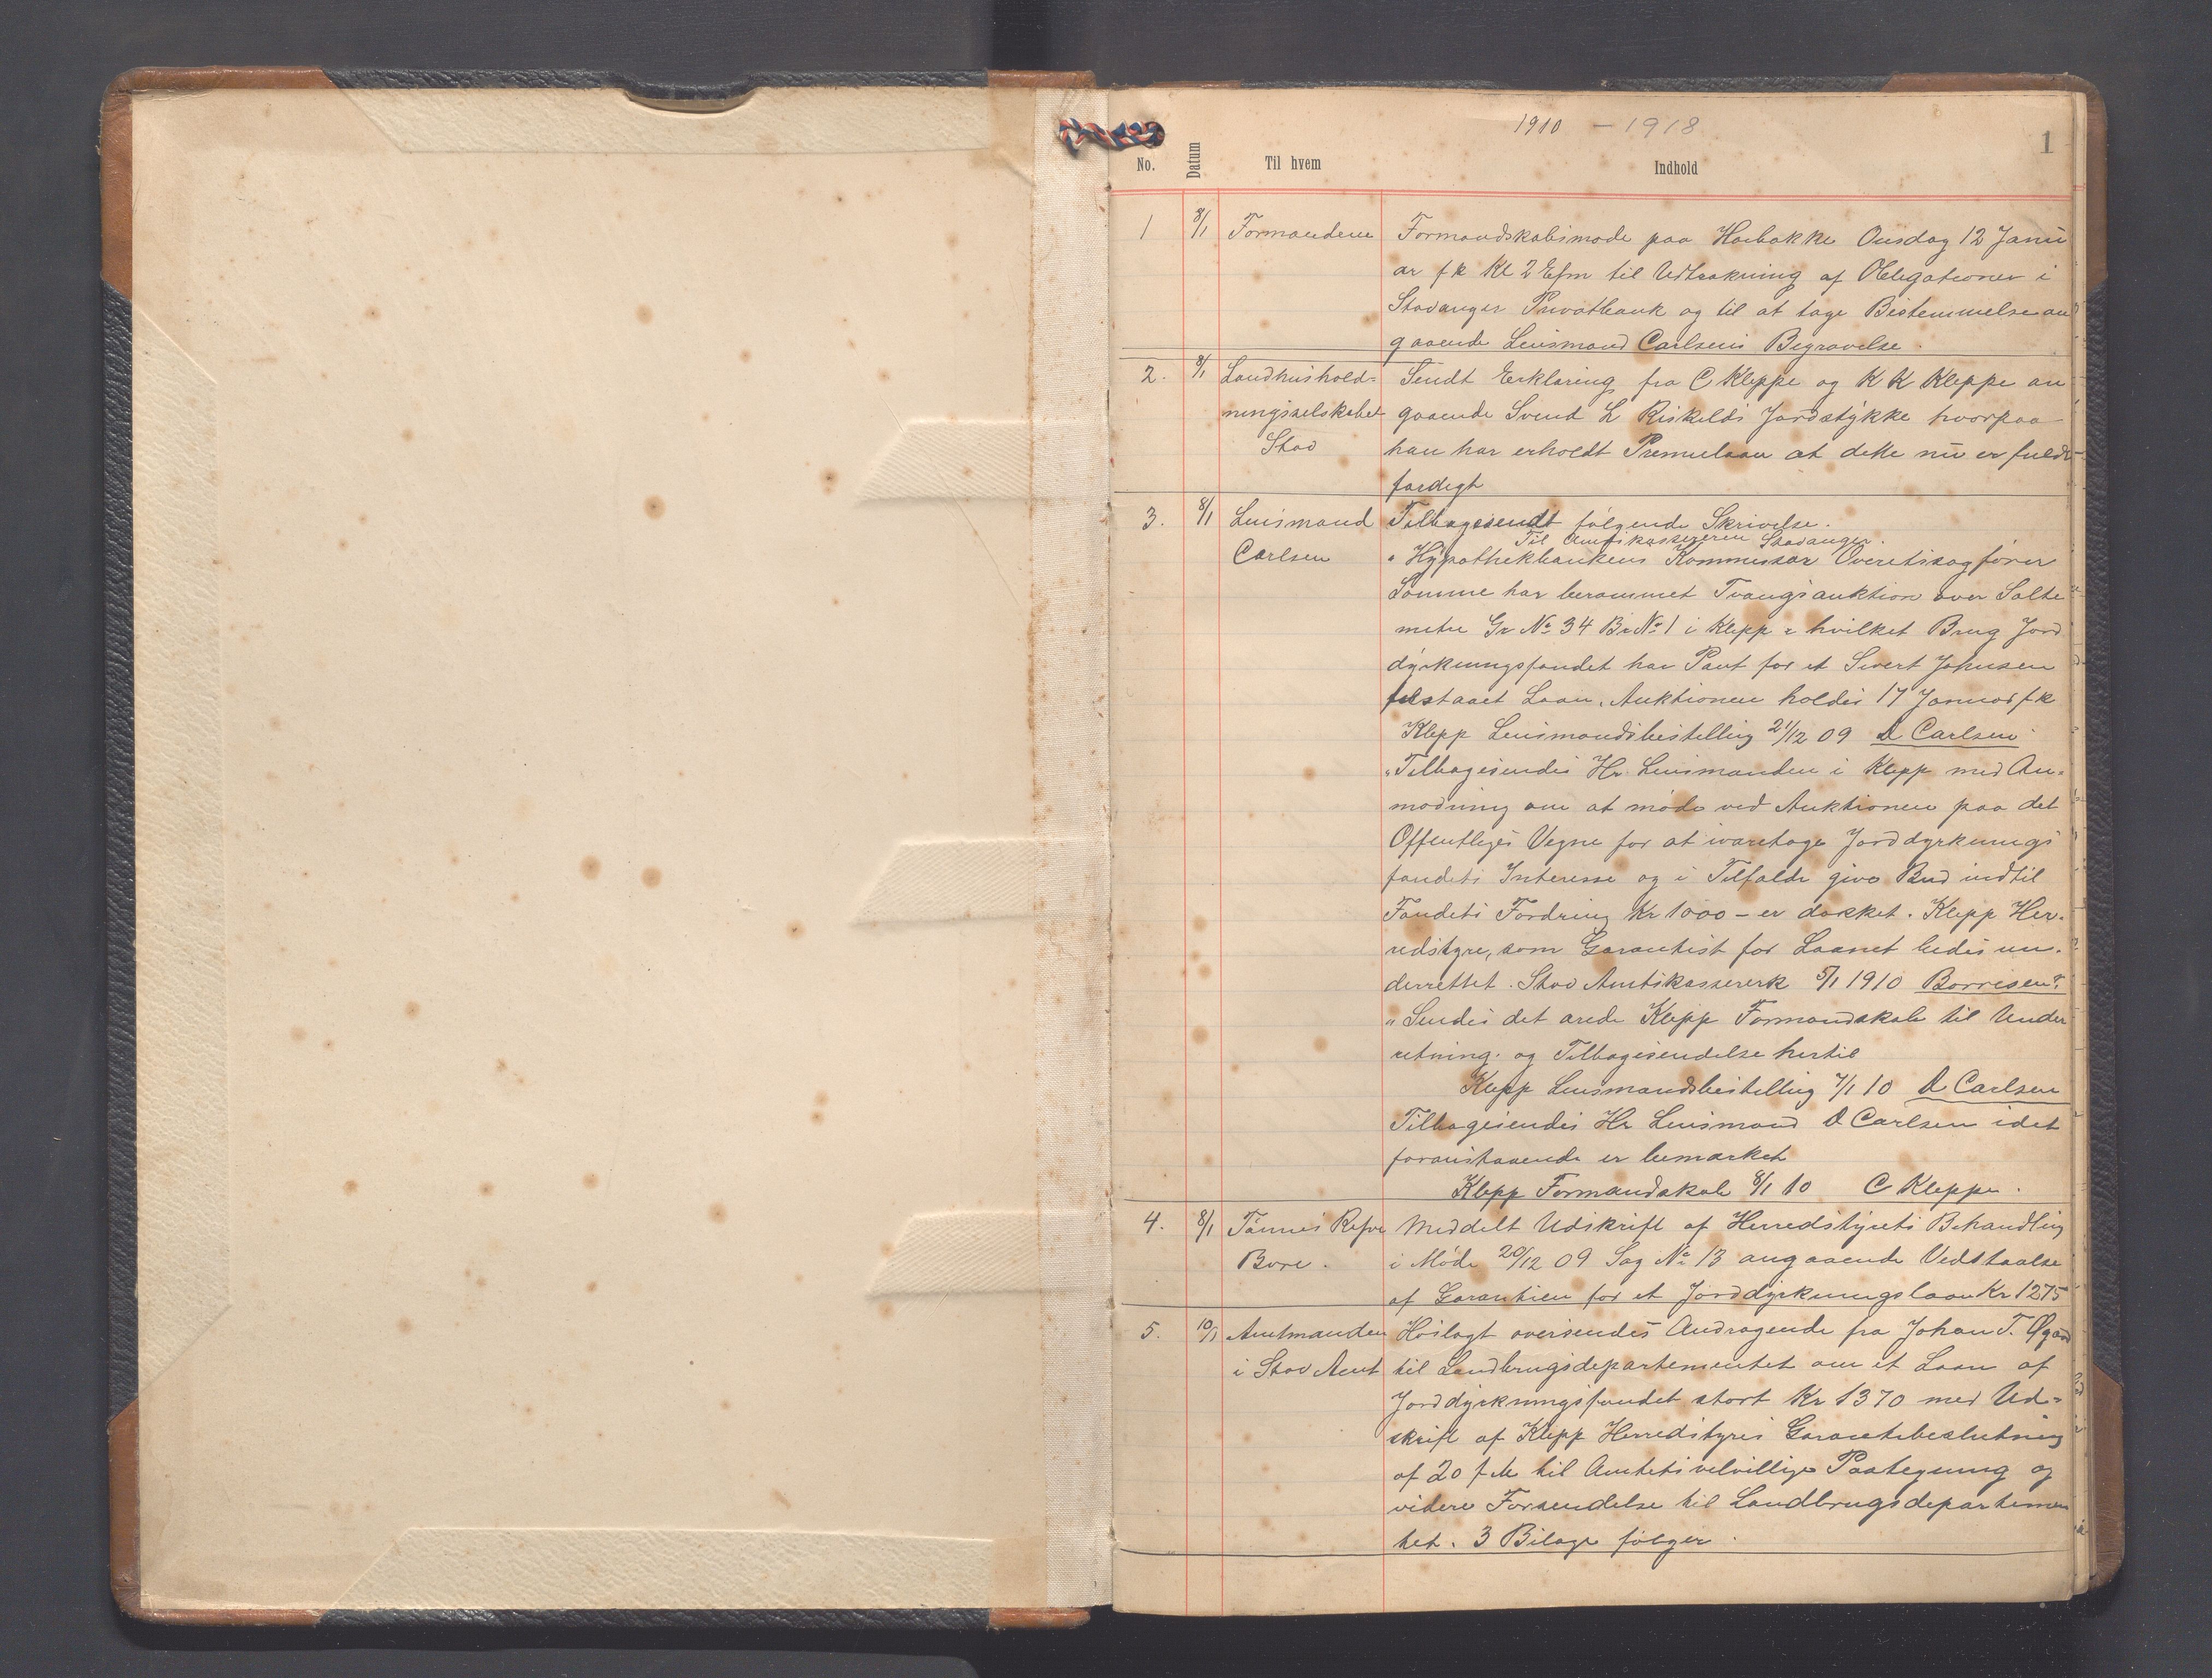 1910 - 1918
1
No. Datum Til hvem Indhold
1 8/1 Formændene Formandskabsmøde paa Haabakke Onsdag 12 Janu
ar f k Kl 2 Efm til Udtrækning af Obligationer i
Stavanger Privatbank og til at tage Bestemmelse an
gaaende Lensmand Carlsens Begravelse.
2. 8/1 Landhushold= Sendt Erklæring fra C Kleppe og K K Kleppe an
ningsselskabet gaaende Svend L Riskelds Jordstykke hvorpaa
Stav han har erholdt Præmielaan at dette nu er fuldt
færdigt
3. 8/1 Lensmand Tilbagesendt følgende Skrivelse.
Til Amtskassereren Stavanger.
Carlsen " Hypothekbankens Kommissær Overetssagfører
Sømme har berammet Tvangsauktion over Salte
metre Gr No 34 Br No 1 i Klepp i hvilket Brug Jord
dyrkningsfondet har Pant for et Sivert Johnsen
tilstaaet Laan. Auktionen holdes 17 Januar f k
Klepp Lensmandsbestilling 21/12 09 D Carlsen
" Tilbagesendes Hr. Lensmanden i Klepp med An=
modning om at møde ved Auktionen paa det
Offentliges Vegne for at ivaretage Jorddyrknings
fondets Interesse og i Tilfælde give Bud indtil
Fondets Fordring Kr 1000 - er dækket. Klepp Her=
redstyre, som Garantist for Laanet bedes un=
derrettet. Stav Amtskassererk 5/1 1910 Borresen.
" Sendes det ærede Klepp Formandskab til Under
retning og Tilbagesendelse hertil
Klepp Lensmandsbestilling 7/1 10 D Carlsen
Tilbagesendes Hr Lensmand D Carlsen idet
foranstaaende er bemærket
Klepp Formandskab 8/1 10 C Kleppe.
4. 8/1 Tønnes Refve Meddelt Udskrift af Herredstyrets Behandling
Bore. i Møde 20/12 09 Sag No 13 angaaende Vedstaalse
af Garantien for et Jorddyrkningslaan Kr 1275
5. 10/1 Amtmanden Hoslagt oversendes Andragende fra Johan T.
i Stav Amt til Landbrugsdepartementet om et Laan af
Jorddyrkningsfondet stort Kr 1370 med Ud=
skrift af Klepp Herredstyres Garantibeslutning
af 20 f M til Amtets velvillige Paategning og
videre Forsendelse til Landbrugsdepartemen
tet. 3 Bilage følger.